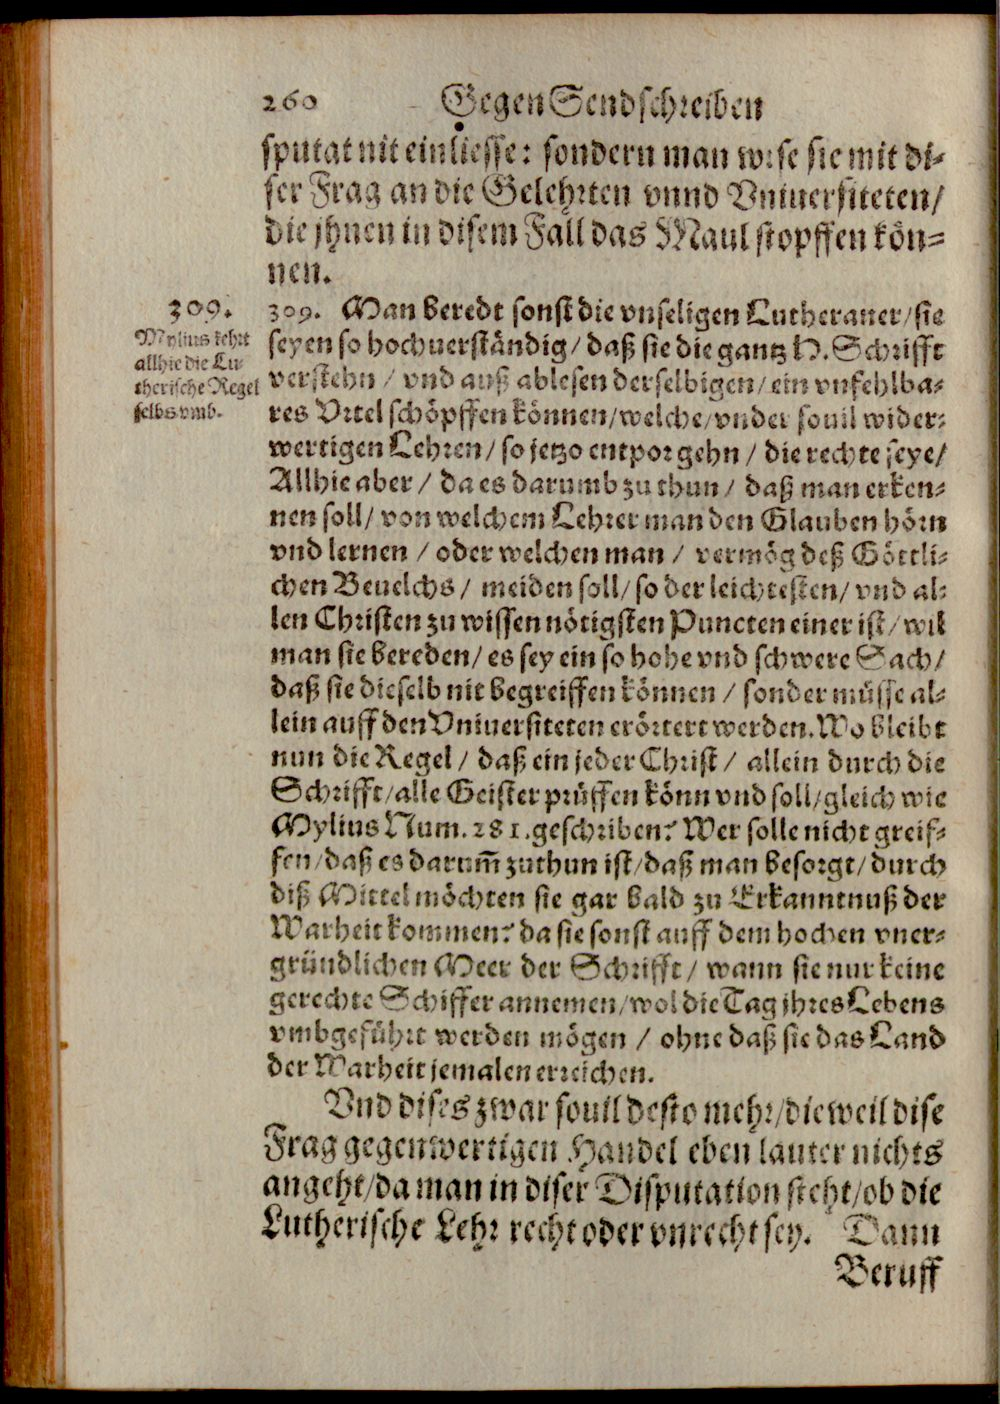 260 Gegen Sendschreiben
sputat nit einliesse: sondern man wise sie mit di-
ser Frag an die Gelehrten vnnd Vniuersiteten/
die jhnen in disem Fall das Maul stopffen kön-
nen.
309.
Mylius kehrt
allhie die Lu-
therische Regel
selbs vmb.
309. Man beredt sonst die vnseligen Lutheraner/sie
seyen so hochuerständig/ daß sie die gantz H. Schrifft
verstehn / vnd auß ablesen derselbigen/ ein vnfehlba-
res Vrtel schöpffen können/welche/vnder souil wider-
wertigen Lehren/ so jetzo entpor gehn / die rechte seye/
Allhie aber / da es darumb zu thun / daß man erken-
nen soll/ von welchem Lehrer man den Glauben hörn
vnd lernen / oder welchen man / vermög deß Göttli-
chen Beuelchs / meiden soll/ so der leichtesten/ vnd al-
len Christen zu wissen nötigsten Puncten einer ist/ wil
man sie bereden/ es sey ein so hohe vnd schwere Sach/
daß sie dieselb nit begreiffen können / sonder müsse al-
lein auff den Vniuersiteten erörtert werden. Wo bleibt
nun die Regel / daß ein jeder Christ / allein durch die
Schrifft/alle Geister prüffen könn vnd soll/gleich wie
Mylius Num. 281. geschriben? Wer solle nicht greif-
fen/daß es darum̃ zuthun ist/daß man besorgt/durch
diß Mittel möchten sie gar bald zu Erkanntnuß der
Warheit kommen? da sie sonst auff dem hochen vner-
gründlichen Meer der Schrifft / wann sie nur keine
gerechte Schiffer annemen/wol die Tag jhres Lebens
vmbgeführt werden mögen / ohne daß sie das Land
der Warheit jemalen erreichen.
Vnd dises zwar souil desto mehr/dieweil dise
Frag gegenwertigen Handel eben lauter nichts
angeht/da man in diser Disputation steht/ob die
Lutherische Lehr recht oder vnrecht sey. Dann
Beruff